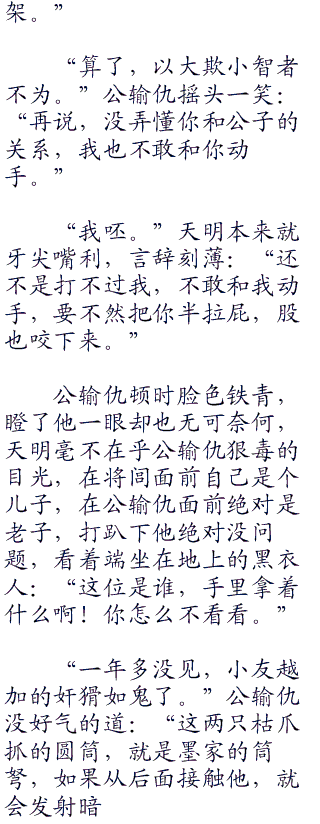 架。”
“算了，以大欺小智者
不为。”公输仇摇头一笑：
“再说，没弄懂你和公子的
关系，我也不敢和你动
手。”
“我呸。”天明本来就
牙尖嘴利，言辞刻薄：“还
不是打不过我，不敢和我动
手，要不然把你半拉屁，股
也咬下来。”
公输仇顿时脸色铁青，
瞪了他一眼却也无可奈何，
天明毫不在乎公输仇狠毒的
目光，在将闾面前自己是个
儿子，在公输仇面前绝对是
老子，打趴下他绝对没问
题，看着端坐在地上的黑衣
人：“这位是谁，手里拿着
什么啊！你怎么不看看。”
“一年多没见，小友越
加的奸猾如鬼了。”公输仇
没好气的道：“这两只枯爪
抓的圆筒，就是墨家的筒
弩，如果从后面接触他，就
会发射暗